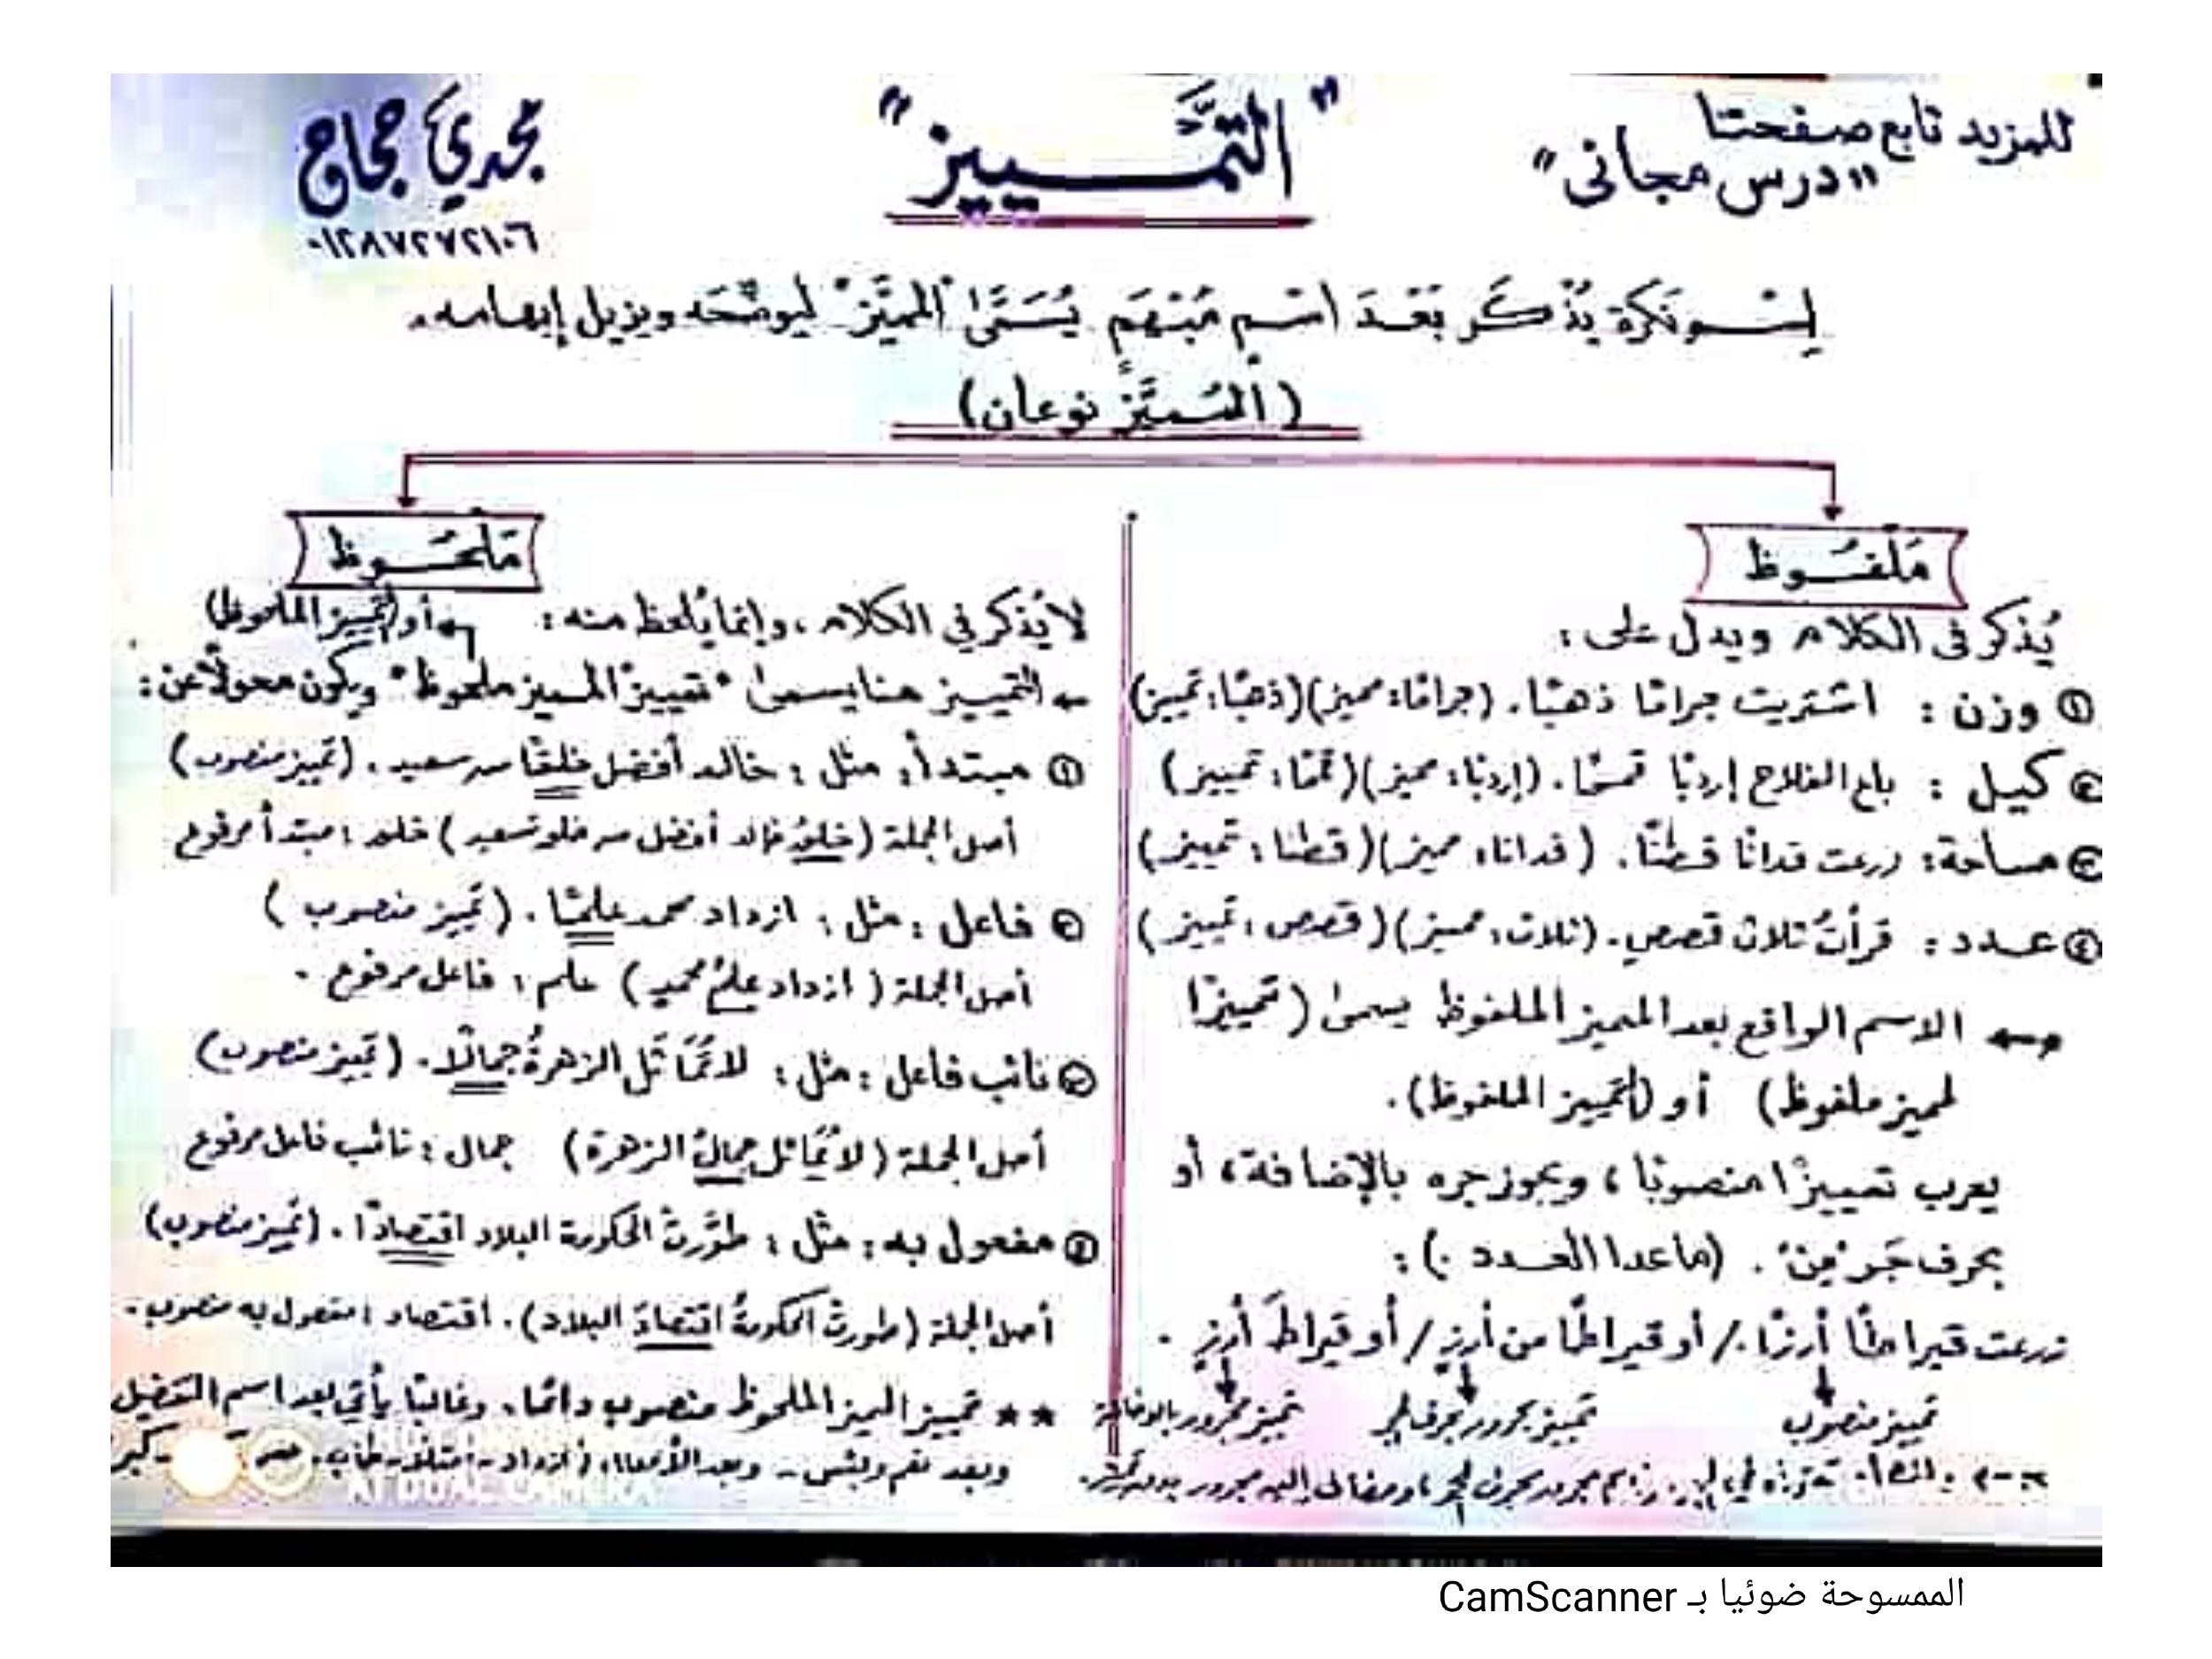 للمزيد تابع صفحتنا
"درس مجاني"
"التمَّــييز"
مجدي حجاج
٠١٢٨٧٢٧٢١٠٦
إسـم نكرة يُذْكَر بَعْـدَ اسْـمٍ مُبْهَمٍ يُسَمَّىٰ "المميَّز" ليوضَّحَه ويزيل إبهامه.
(المُـميَّز نوعان)
مَلْفـُـوظ
يُذكر فى الكلام ويدل على:
① وزن : اشتريت جرامًا ذهبًا. (جرامًا: مميز)(ذهبًا: تمييز)
② كيل : باع الفلاح إردبًا قمحًا. (إردبًا: مميز)(قمحًا: تمييز)
③ مساحة: زرعت فدانًا قطنًا. (فدانا: مميز)(قطنا: تمييز)
④ عـدد : قرأتُ ثلاث قصصٍ. (ثلاث: مميز)(قصص: تمييز)
الاسم الواقع بعد المميز الملفوظ يسمىٰ (تمييزًا
لمميز ملفوظ) أو (التمييز الملفوظ).
يعرب تمييزًا منصوبًا، ويجوز جره بالإضافة، أو
بحرف جَر "مِن" . (ماعدا العـدد) :
زرعت قيراطًا أرزًا./ أو قيراطًا من أرزٍ / أو قيراطَ أرزٍ .
تمييز منصوب
تمييز مجرور بحرف الجر
تمييز مجرور بالإضافة
مجرور بحرف الجر، ومضاف إليه مجرور
مَلْحـُـوظ
لا يُذكر في الكلام، وإنما يُلحظ منه :
أو (التمييز الملحوظ)
← التمييز هنا يسمىٰ "تمييز المميز ملحوظ" ويكون محولًا عن:
① مبتدأ: مثل : خالد أفضل خلقًا من سعيد . (تمييز منصوب)
أصل الجملة (خلقُ خالد أفضل من خلق سعيد) خلق : مبتدأ مرفوع
② فاعل : مثل : ازداد محمد علمًا . (تمييز منصوب)
أصل الجملة ( ازداد علمُ محمدٍ) علم : فاعل مرفوع .
③ نائب فاعل : مثل : لا تُمَاثَل الزهرةُ جمالًا. (تمييز منصوب)
أصل الجملة (لا يُمَاثل جمالُ الزهرة) جمال : نائب فاعل مرفوع
④ مفعول به : مثل : طوَّرتْ الحكومة البلاد اقتصادًا . (تمييز منصوب)
أصل الجملة (طورتْ الحكومةُ اقتصادَ البلاد). اقتصاد : مفعول به منصوب.
★★ تمييز المميز الملحوظ منصوب دائمًا، وغالبًا يأتي بعد اسم التفضيل
وبعد نعم وبئس - وبعد الأفعال: (ازداد - امتلأ - طاب
AI DUAL CAMERA
الممسوحة ضوئيا بـ CamScanner